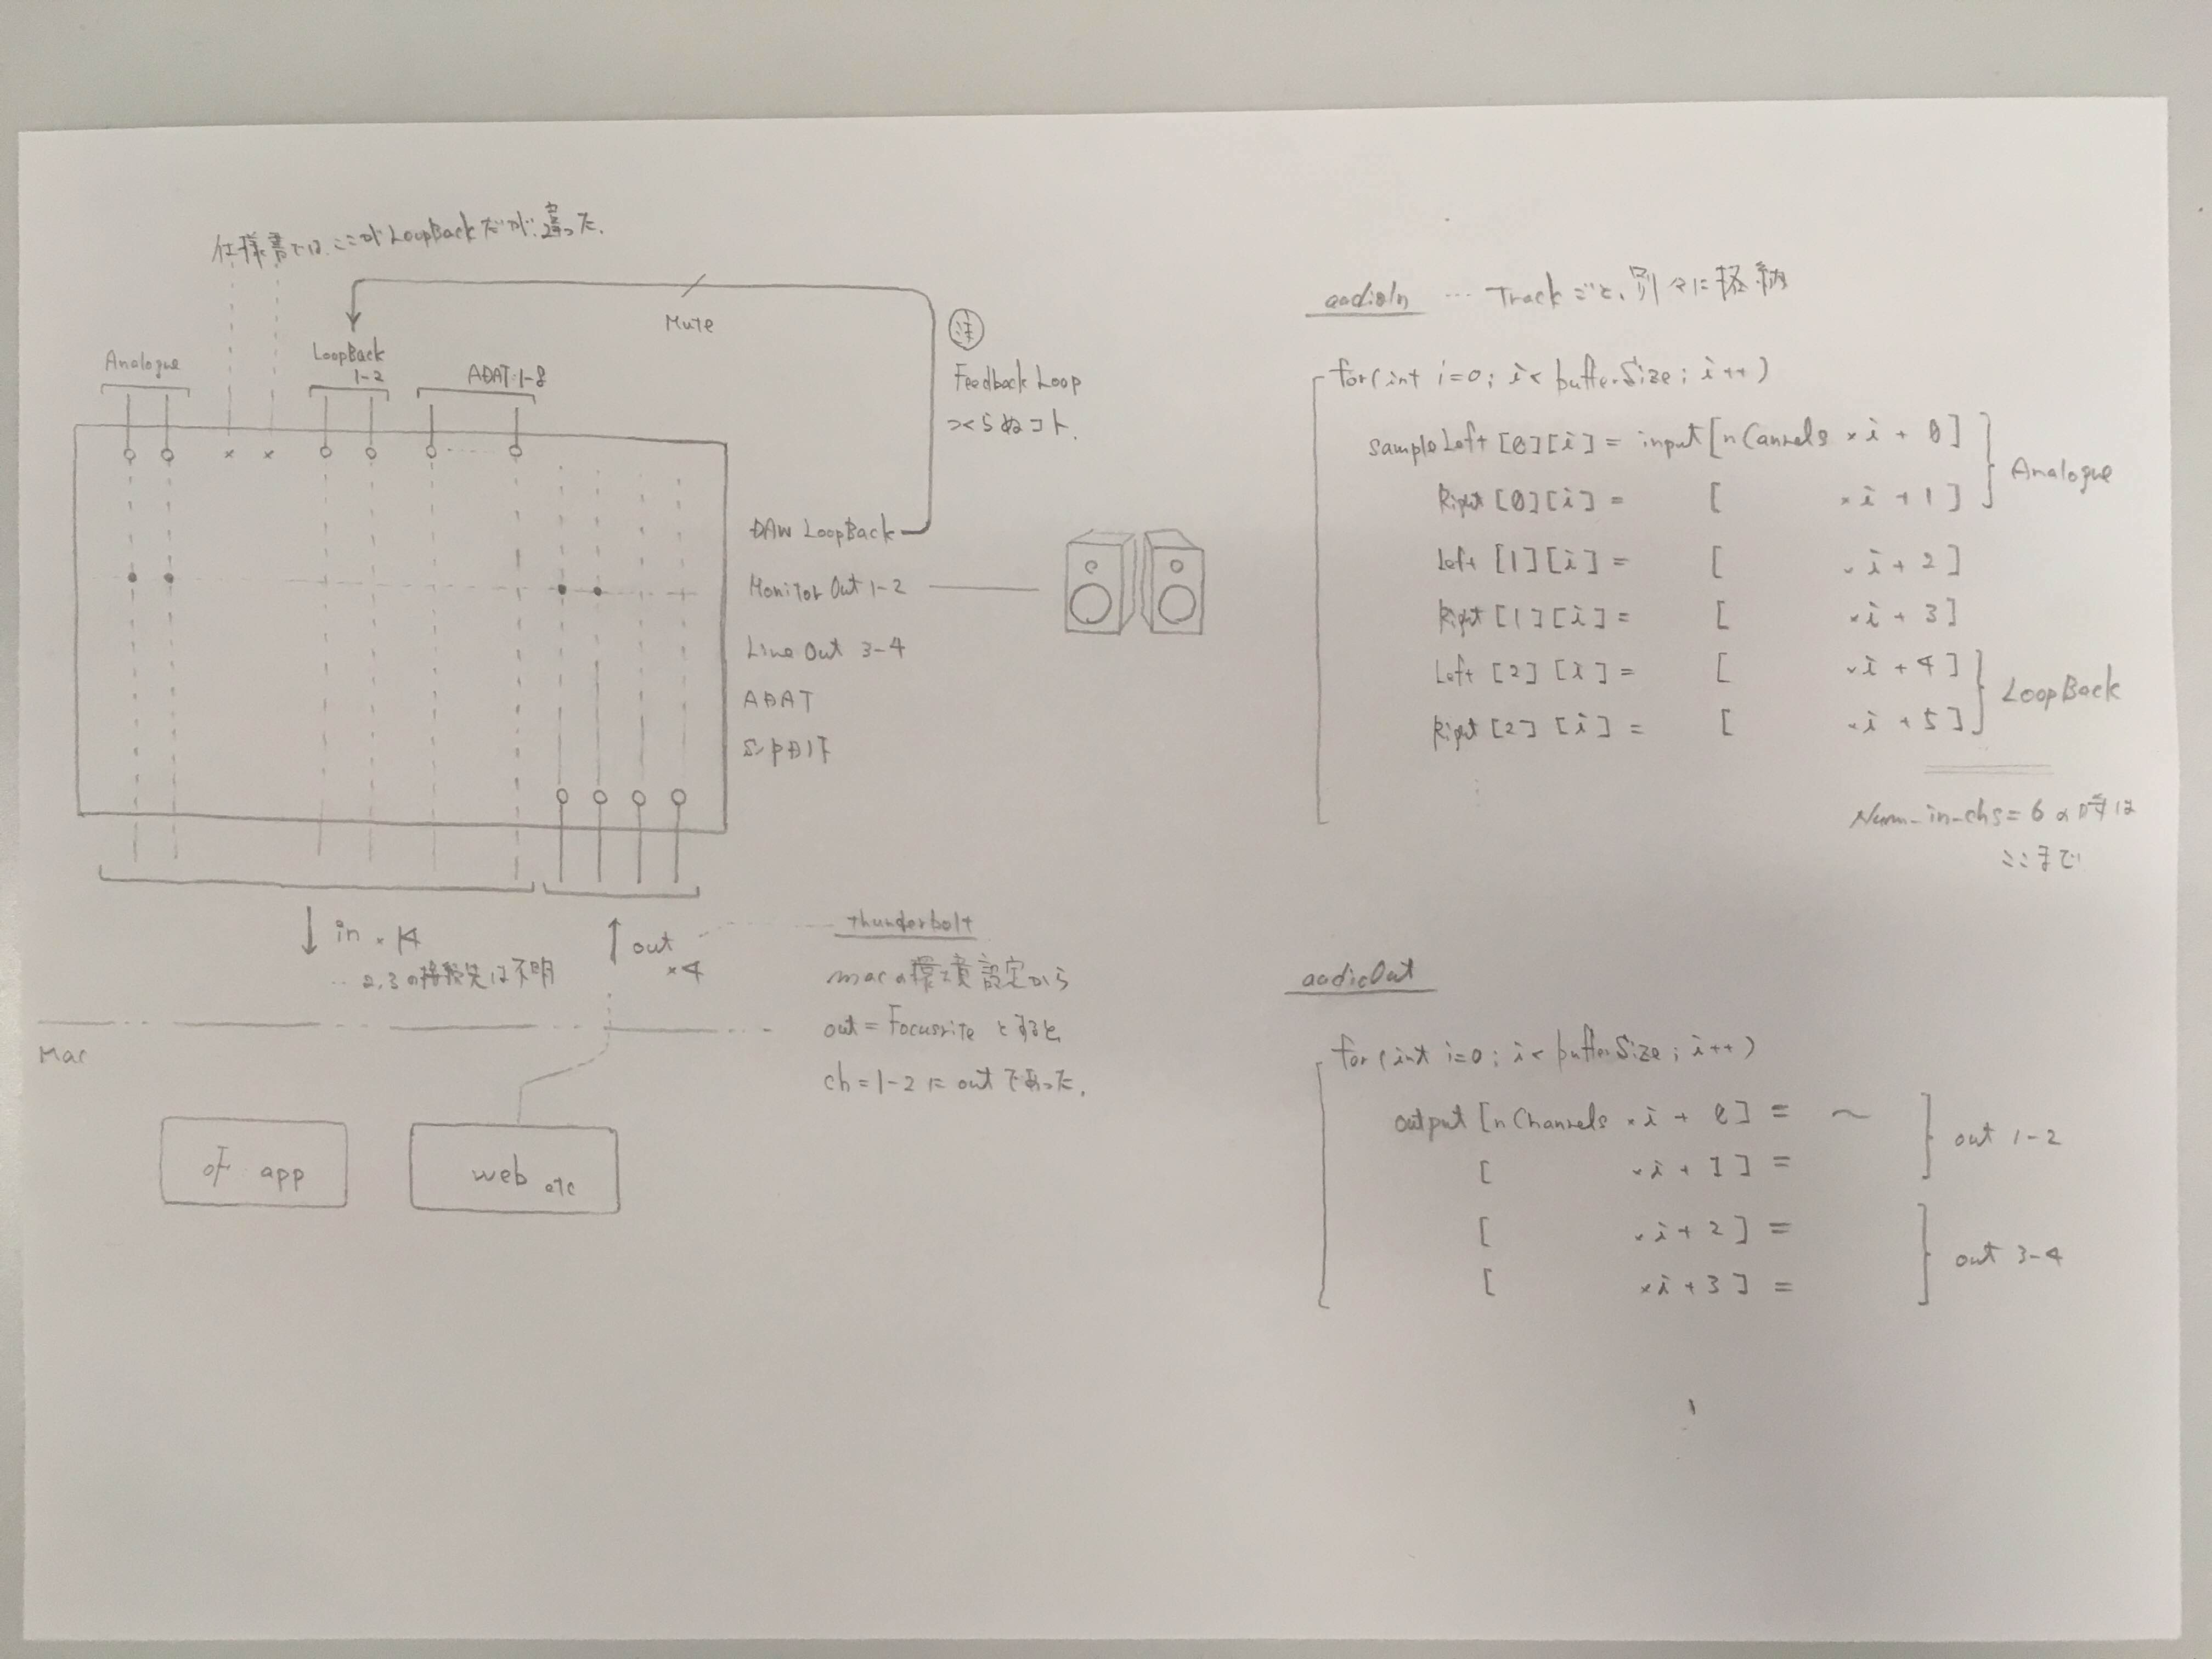 仕様書では、ここがLoopBackだが、違った.
Mute
Analogue
LoopBack
1-2
ADAT 1-8
注
Feedback Loop
つくらぬコト.
DAW LoopBack
Monitor Out 1-2
Line Out 3-4
ADAT
S/PDIF
in × 14
‥ 2,3の接続先は不明
out
×4
Thunderbolt
macの環境設定から
out = Focusrite とすると、
ch = 1-2 に out であった.
Mac
of app
web etc
audioIn ‥‥ Trackごと、別々に格納
for(int i=0; i< bufferSize; i++)
sampleLeft [0][i] = input[nCannels × i + 0]
Right [0][i] = [ × i + 1]
Analogue
Left [1][i] = [ × i + 2]
Right [1][i] = [ × i + 3]
Left [2][i] = [ × i + 4]
Right [2][i] = [ × i + 5]
LoopBack
Num_in_chs = 6 の時は
ここまで
audioOut
for(int i=0; i< bufferSize; i++)
output [nChannels × i + 0] = 〜
[ × i + 1] =
out 1-2
[ × i + 2] =
[ × i + 3] =
out 3-4